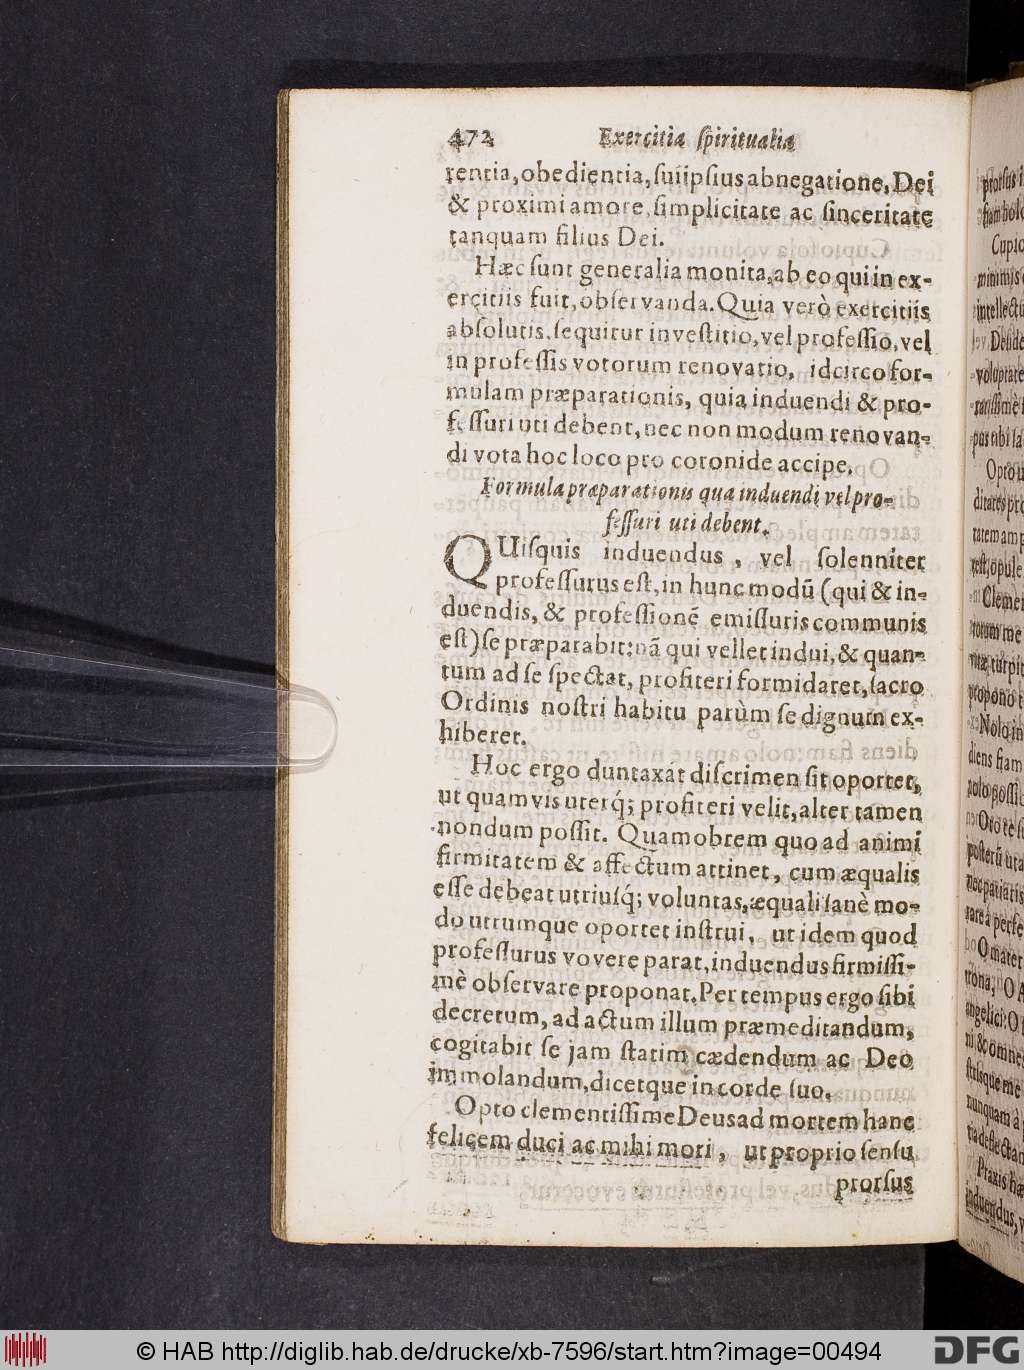 472 Exercitia ſpiritualia
rentia, obedientia, ſuiipſius abnegatione, Dei
& proximi amore, ſimplicitate ac ſinceritate
tanquam filius Dei.
Hæc ſunt generalia monita, ab eo qui in ex-
ercitiis fuit, obſervanda. Quia verò exercitiis
abſolutis, ſequitur inveſtitio, vel profeſſio, vel
in profeſſis votorum renovatio, idcirco for-
mulam præparationis, quia induendi & pro-
feſſuri uti debent, nec non modum renovan-
di vota hoc loco pro coronide accipe.
Formula præparationis qua induendi vel pro-
feſſuri uti debent.
QUiſquis induendus, vel ſolenniter
profeſſurus eſt, in hunc modū (qui & in-
duendis, & profeſſionē emiſſuris communis
eſt) ſe præparabit: nā qui vellet indui, & quan-
tum ad ſe ſpectat, profiteri formidaret, ſacro
Ordinis noſtri habitu parùm ſe dignum ex-
hiberet.
Hoc ergo duntaxat diſcrimen ſit oportet,
ut quamvis uterq́; profiteri velit, alter tamen
nondum poſſit. Quamobrem quo ad animi
firmitatem & affectum attinet, cum æqualis
eſſe debeat utriuſq́; voluntas, æquali ſanè mo-
do utrumque oportet inſtrui, ut idem quod
profeſſurus vovere parat, induendus firmiſſi-
mè obſervare proponat. Per tempus ergo ſibi
decretum, ad actum illum præmeditandum,
cogitabit ſe jam ſtatim cædendum ac Deo
immolandum, dicetque in corde ſuo.
Opto clementiſſime Deus ad mortem hanc
felicem duci ac mihi mori, ut proprio ſenſu
prorſus
© HAB http://diglib.hab.de/drucke/xb-7596/start.htm?image=00494
DFG